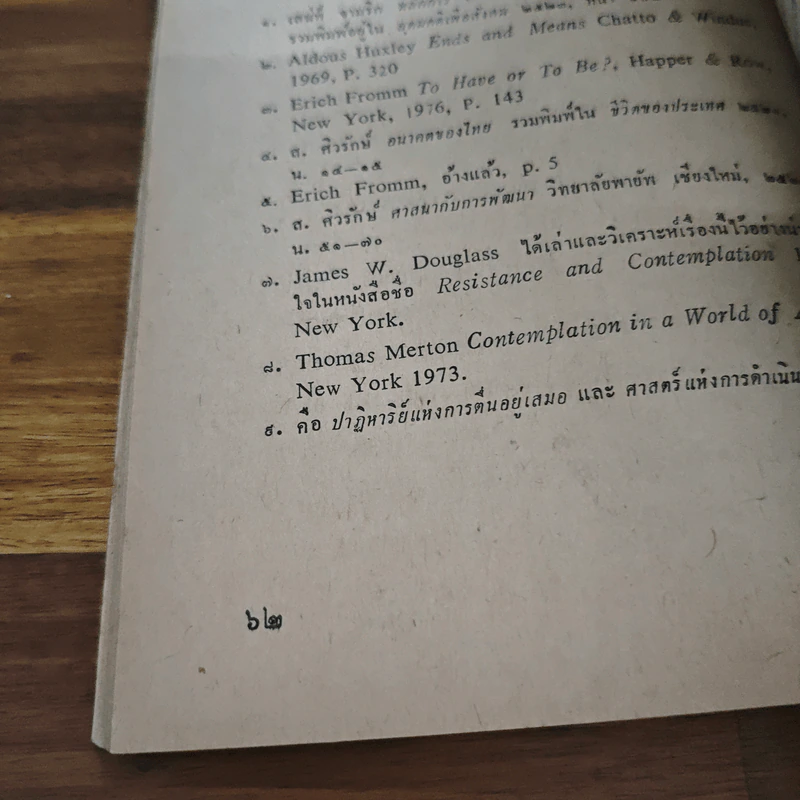 ๑. เสน่ห์ จามริก
รวมพิมพ์อยู่ใน อุดมคติเพื่อสังคม ๒๕๒๓,
๒. Aldous Huxley Ends and Means Chatto & Windus,
1969, P. 320
๓. Erich Fromm To Have or To Be?, Happer & Row,
New York, 1976, P. 143
๔. ส. ศิวรักษ์ อนาคตของไทย รวมพิมพ์ใน ชีวิตของประเทศ
น. ๑๔—๑๕
๕. Erich Fromm, อ้างแล้ว, p. 5
๖. ส. ศิวรักษ์ ศาสนากับการพัฒนา วิทยาลัยพายัพ เชียงใหม่,
น. ๕๑—๗๐
๗. James W. Douglass ได้เล่าและวิเคราะห์เรื่องนี้ไว้อย่าง
ใจในหนังสือชื่อ Resistance and Contemplation
New York.
๘. Thomas Merton Contemplation in a World of
New York 1973.
๙. คือ ปาฏิหาริย์แห่งการตื่นอยู่เสมอ และ ศาสตร์แห่งการดำเนิน
๖๒